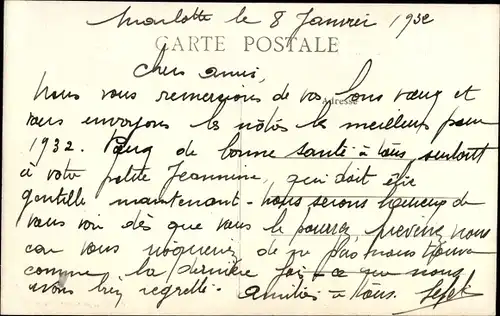 Marlotte le 8 Janvier 1932
CARTE POSTALE
Chers amis,
Adresse
Nous vous remercions de vos bons vœux et
vous envoyons les nôtres les meilleurs pour
1932. de bonne santé à tous, surtout
à votre petite Jeannine, qui doit être
gentille maintenant. Nous serons heureux de
vous voir dès que vous le pourrez, prévenez nous
car vous risqueriez de ne pas nous trouver
comme la dernière fois - ce que nous
avons bien regretté. Amitiés à tous.